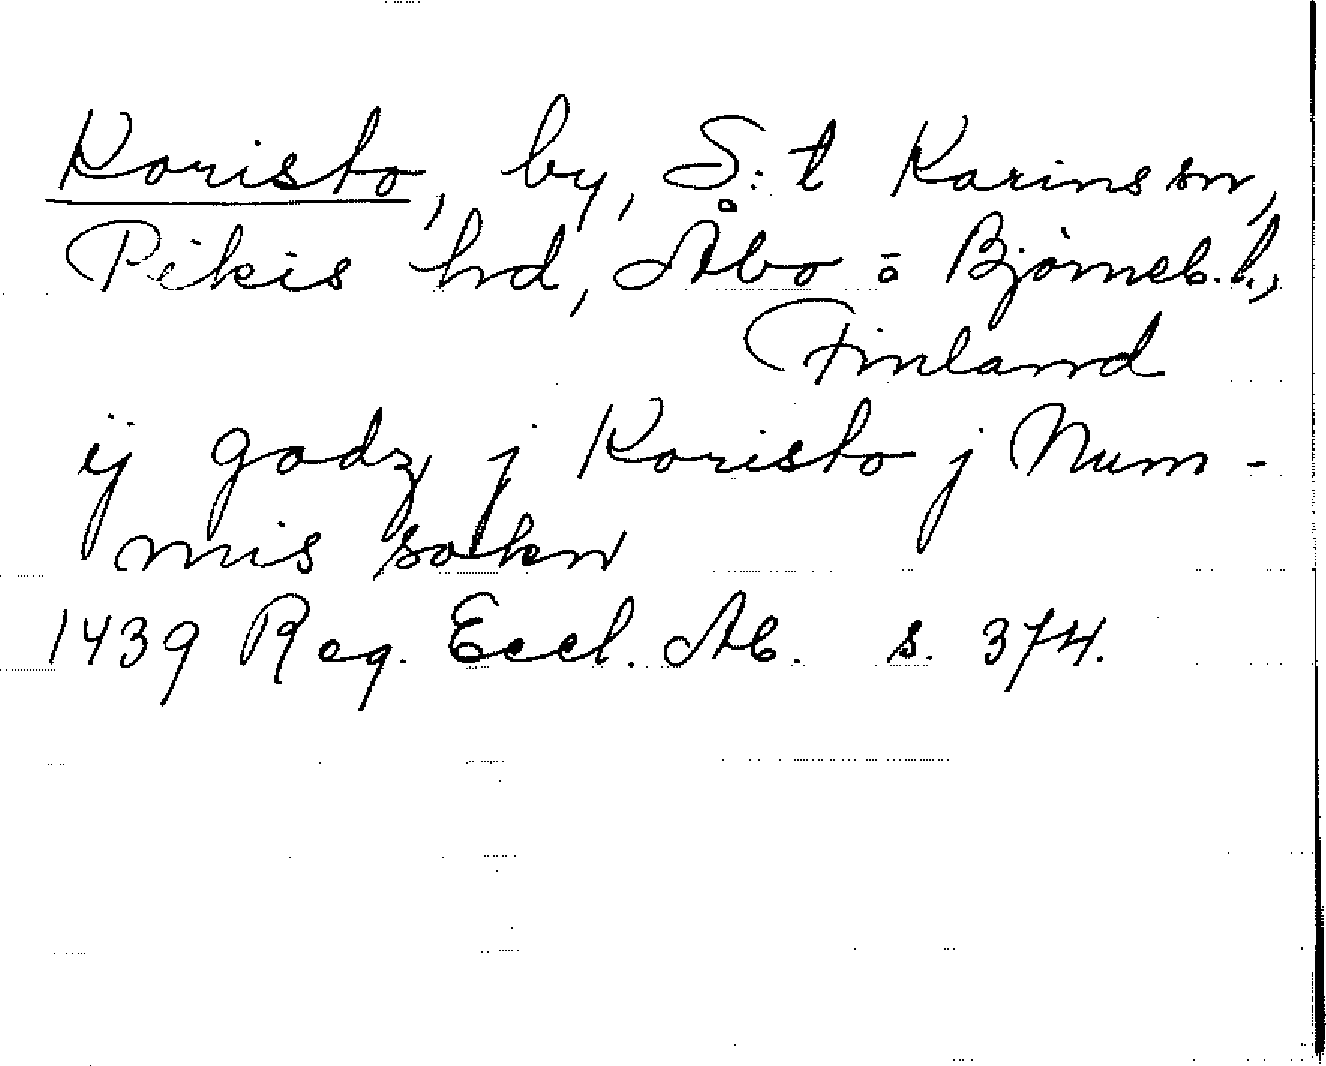 Koristo, by, S:t Karins sn,
Pikis hd, Åbo o. Björneb. l.,
Finland
ij godz j Koristo j Num-
mis sokn
1439 Reg. Eccl. Ab. s. 374.